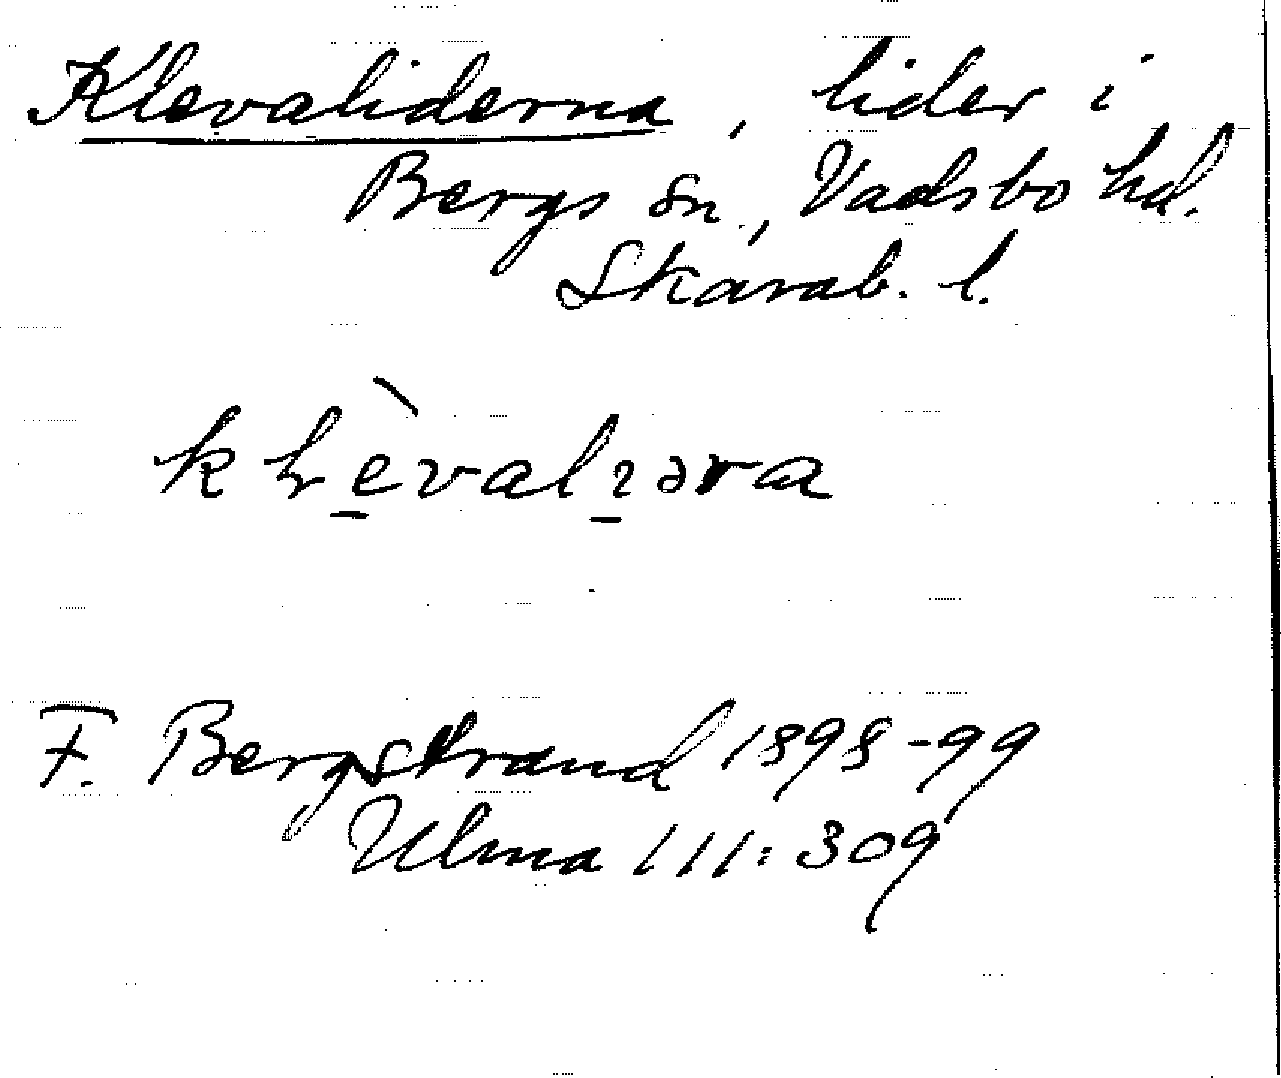 Klevaliderna, lider i
Bergs sn, Vadsbo hd.
Skarab. l.
F. Bergstrand 1898-99
Ulma 111:309